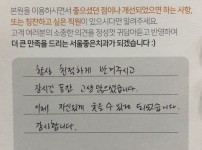 본원을 이용하시면서 좋으셨던 점이나 개선되었으면 하는 사항,
또는 칭찬하고 싶은 직원이 있으시다면 말려주세요.
고객 여러분의 소중한 의견을 정성껏 귀담아듣고 반영하여
더 큰 만족을 드리는 서울좋은치과가 되겠습니다 :)
항상 친절하게 반겨주시고
긴시간 동안 고생 많으셨습니다.
이제 자신있게 웃을 수 있게 되었습니다
감사합니다.